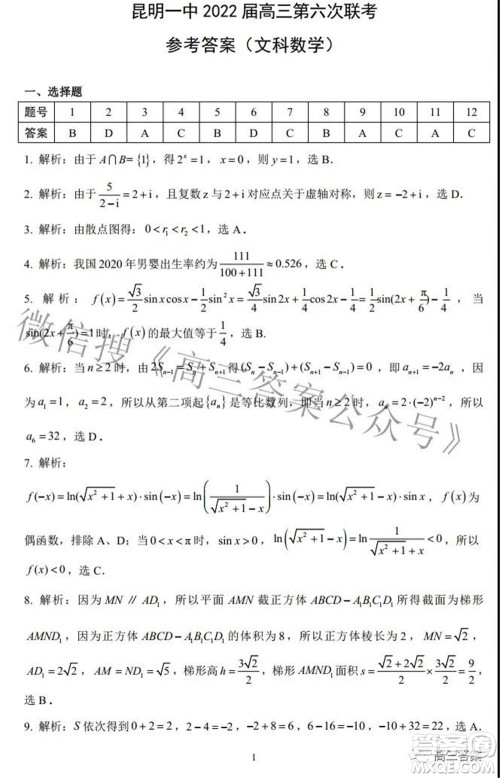 昆明一中 2022 届高三第六次联考
参考答案（文科数学）
一、选择题
题号 1 2 3 4 5 6 7 8 9 10 11 12
答案 B D A C B D C B A C A C
1. 解析：由于 A∩B={1}，得 2^x=1，x=0，则 y=1，选 B．
2. 解析：由于 5/(2-i)=2+i，且复数 z 与 2+i 对应点关于虚轴对称，则 z=-2+i，选 D．
3. 解析：由散点图得：0<r₁<r₂<1，选 A．
4. 解析：我国 2020 年男婴出生率约为 111/(100+111)≈0.526，选 C．
5. 解析：f(x)=√3/2 sin x cos x-1/2 sin²x=√3/4 sin2x+1/4 cos2x-1/4=1/2 sin(2x+π/6)-1/4，当
sin(2x+π/6)=1时，f(x)的最大值等于1/4，选 B.
6. 解析：当 n≥2 时，由 2Sₙ₋₁=Sₙ+Sₙ₊₁得(Sₙ-Sₙ₋₁)+(Sₙ₊₁-Sₙ₋₁)=0，即 aₙ₊₁=-2aₙ，因
为 a₁=1，a₂=2，所以从第二项起{aₙ}是等比数列，即当 n≥2 时，aₙ=2·(-2)ⁿ⁻²，所以
a₆=32，选 D．
7. 解析：
f(-x)=ln(√(x²+1)+x)·sin(-x)=ln(1/(√(x²+1)-x))·sin(-x)=ln(√(x²+1)-x)·sin x，f(x)为
偶函数，排除 A、D；当 0<x<π 时，sin x>0，ln(√(x²+1)-x)=ln 1/(√(x²+1)+x)<0，所以
f(x)<0，选 C．
8. 解析：因为 MN∥AD₁，所以平面 AMN 截正方体 ABCD-A₁B₁C₁D₁ 所得截面为梯形
AMND₁，因为正方体 ABCD-A₁B₁C₁D₁ 的体积为 8，所以正方体棱长为 2，MN=√2，
AD₁=2√2，AM=ND₁=√5，梯形高 h=3√2/2，梯形 AMND₁ 面积 s=(√2+2√2)/2×3√2/2=9/2，
选 B．
9. 解析：S 依次得到 0+2=2，2-4=-2，-2-8=-10，-10+32=22，选 A．
1
微信搜《高三答案公众号》
高三答案